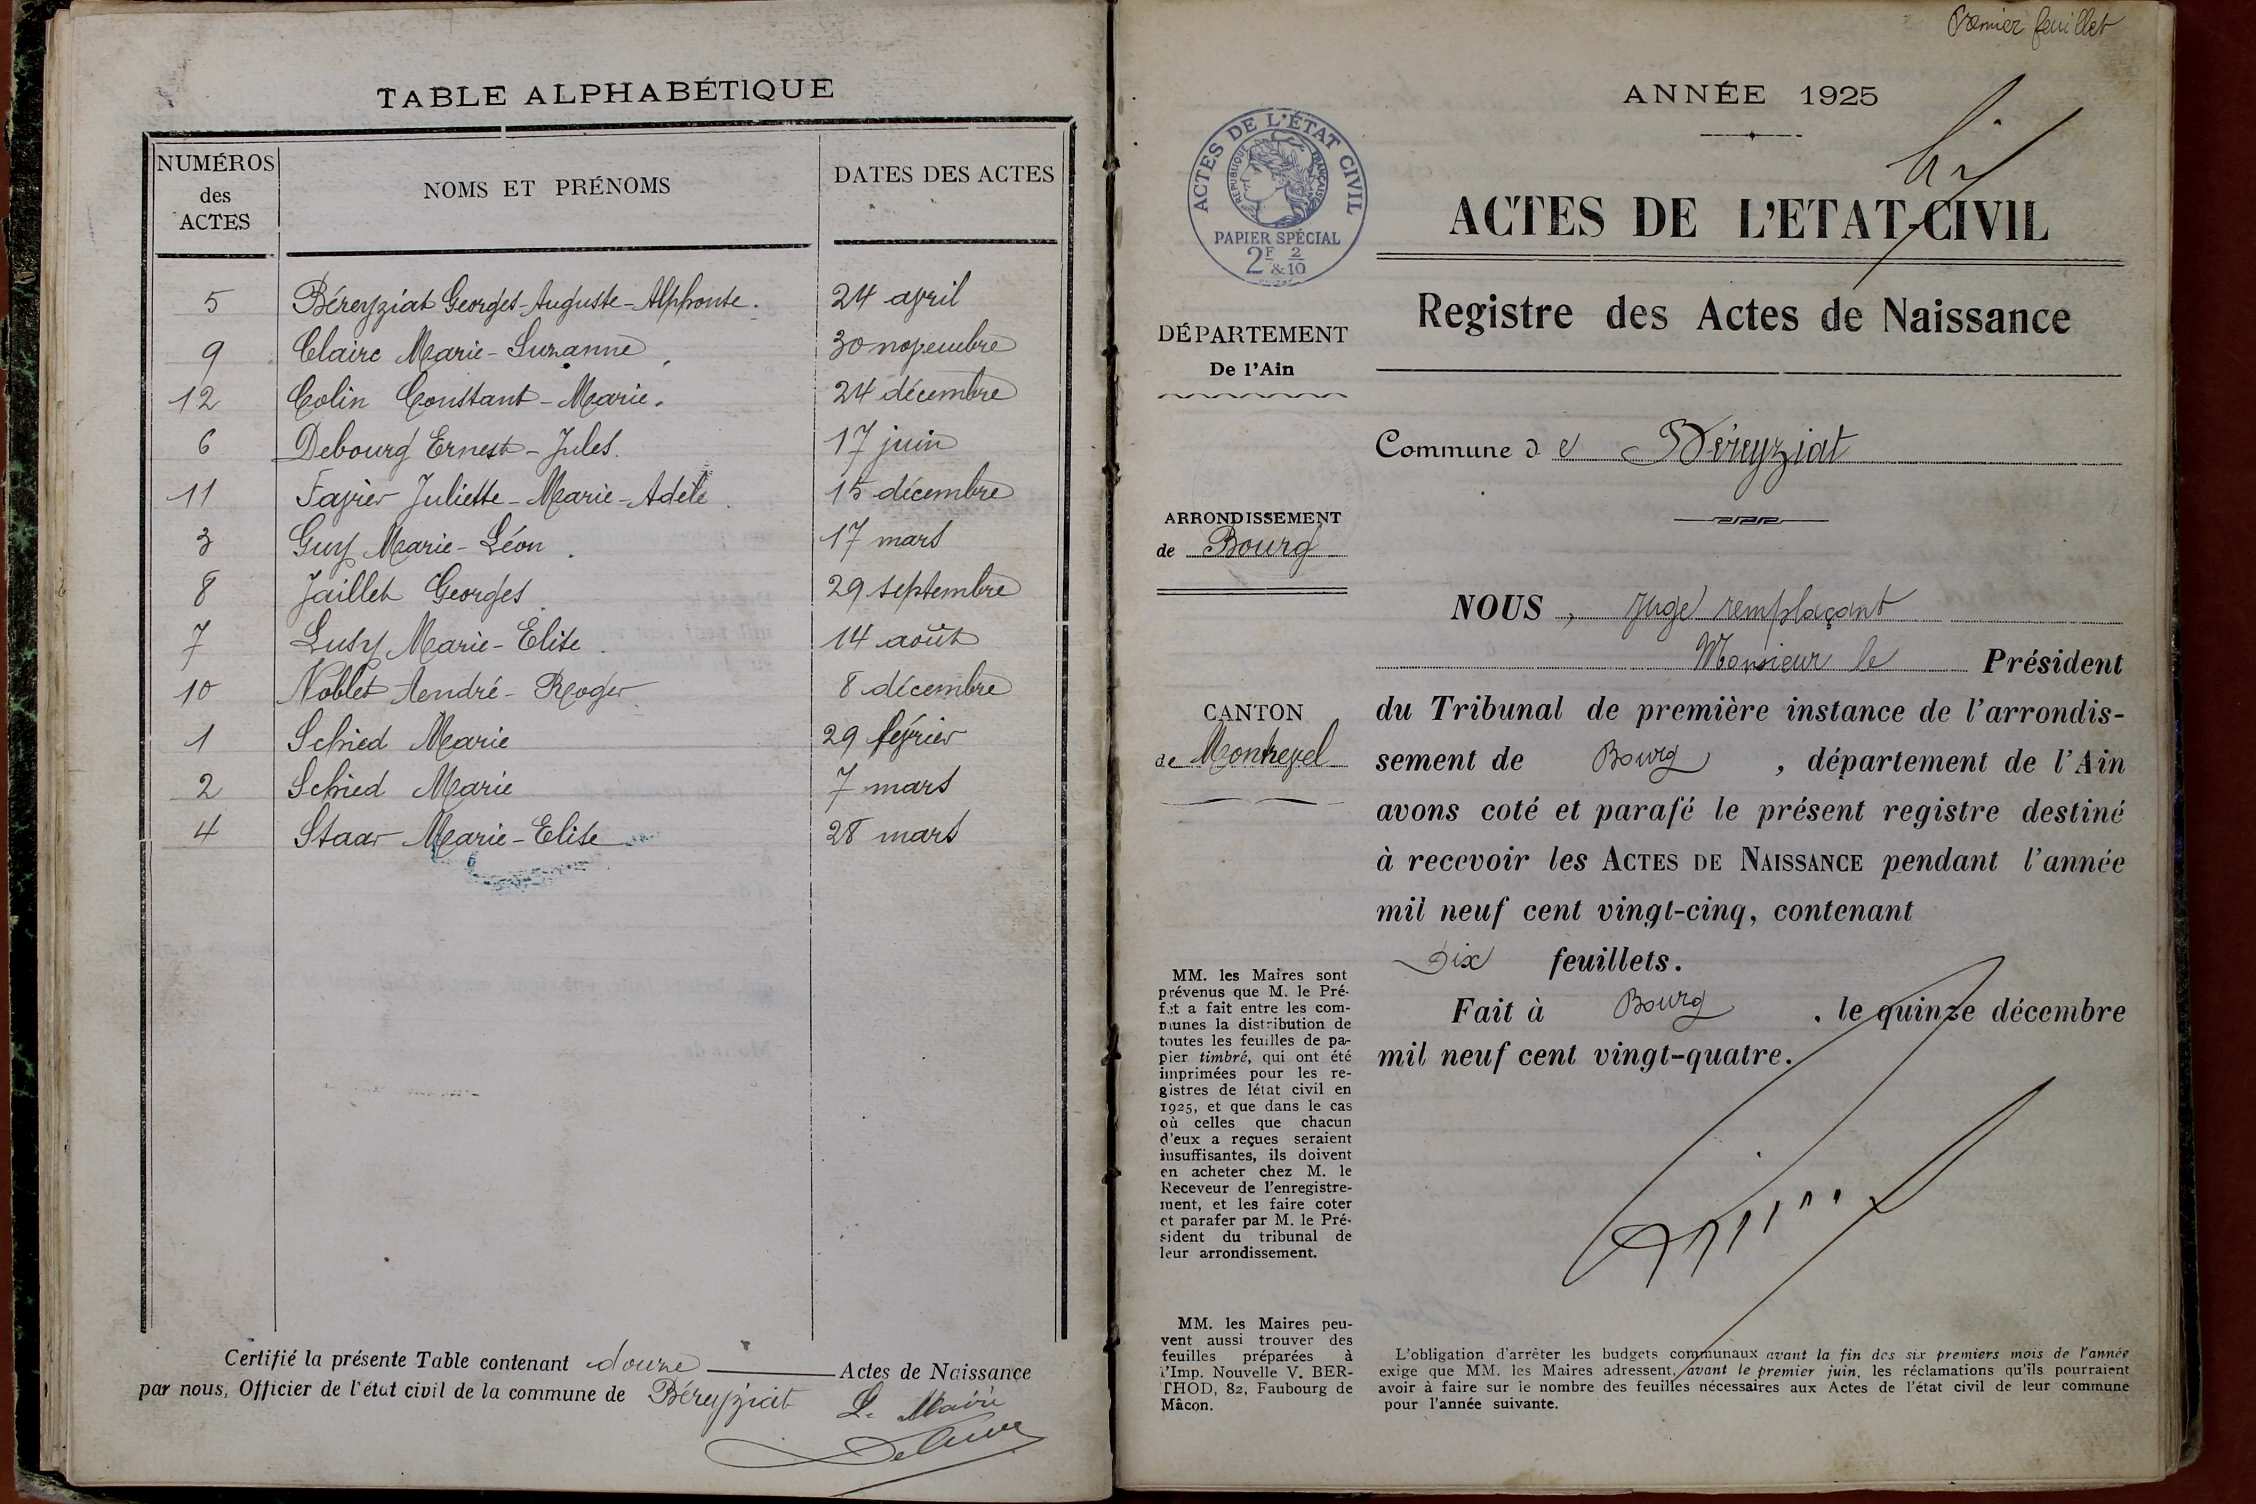 TABLE ALPHABÉTIQUE
NUMÉROS
des
ACTES
NOMS ET PRÉNOMS
DATES DES ACTES
5 Béreyziat Georges-Auguste-Alphonse. 24 avril
9 Claire Marie-Suzanne 30 novembre
12 Colin Constant-Marie. 24 décembre
6 Debourg Ernest-Jules. 17 juin
11 Favier Juliette-Marie-Adèle 15 décembre
3 Guy Marie-Léon. 17 mars
8 Jaillet Georges 29 septembre
7 Lusy Marie-Elise. 14 août
10 Noblet André-Roger 8 décembre
1 Schied Marie 29 février
2 Schied Marie 7 mars
4 Staar Marie-Elise 28 mars
Certifié la présente Table contenant douze Actes de Naissance
par nous, Officier de l'état civil de la commune de Béreyziat
Le Maire
Premier feuillet
ANNÉE 1925
ACTES DE L'ÉTAT CIVIL
RÉPUBLIQUE FRANÇAISE
PAPIER SPÉCIAL
2F 2
&10
ACTES DE L'ETAT-CIVIL
Registre des Actes de Naissance
DÉPARTEMENT
De l'Ain
Commune de Béreyziat
ARRONDISSEMENT
de Bourg
CANTON
de Montrevel
NOUS, Juge remplaçant
Monsieur le Président
du Tribunal de première instance de l'arrondis-
sement de Bourg, département de l'Ain
avons coté et parafé le présent registre destiné
à recevoir les ACTES DE NAISSANCE pendant l'année
mil neuf cent vingt-cinq, contenant
Dix feuillets.
Fait à Bourg, le quinze décembre
mil neuf cent vingt-quatre.
MM. les Maires sont
prévenus que M. le Pré-
fet a fait entre les com-
munes la distribution de
toutes les feuilles de pa-
pier timbré, qui ont été
imprimées pour les re-
gistres de létat civil en
1925, et que dans le cas
où celles que chacun
d'eux a reçues seraient
insuffisantes, ils doivent
en acheter chez M. le
Receveur de l'enregistre-
ment, et les faire coter
et parafer par M. le Pré-
sident du tribunal de
leur arrondissement.
MM. les Maires peu-
vent aussi trouver des
feuilles préparées à
l'Imp. Nouvelle V. BER-
THOD, 82, Faubourg de
Mâcon.
L'obligation d'arrêter les budgets communaux avant la fin des six premiers mois de l'année
exige que MM. les Maires adressent, avant le premier juin, les réclamations qu'ils pourraient
avoir à faire sur le nombre des feuilles nécessaires aux Actes de l'état civil de leur commune
pour l'année suivante.